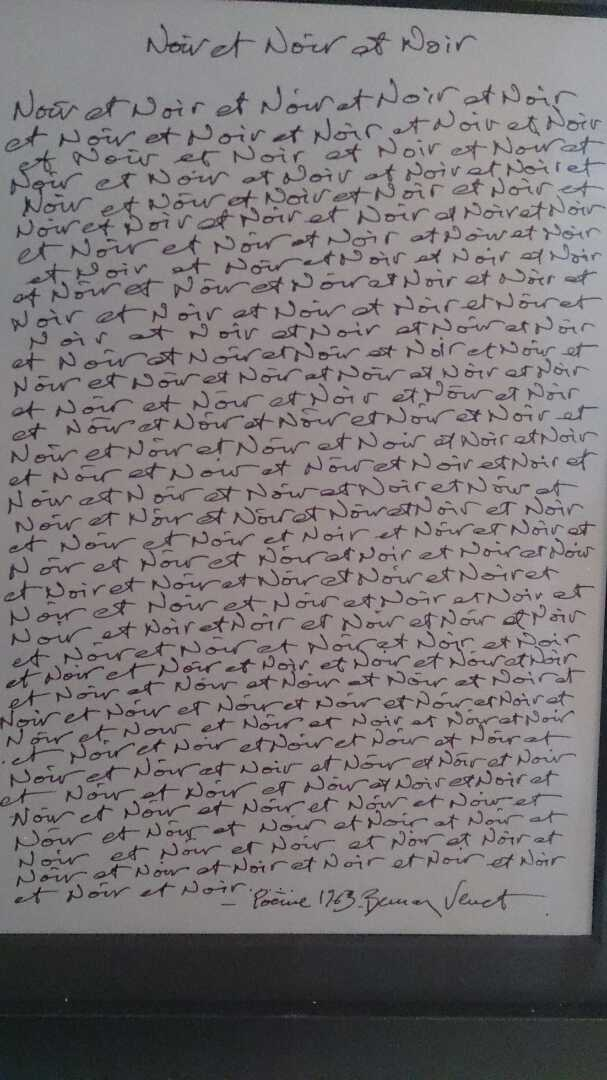 Noir et Noir et Noir
Noir et Noir et Noir et Noir et Noir
et Noir et Noir et Noir et Noir et Noir
et Noir et Noir et Noir et Noir et
Noir et Noir et Noir et Noir et Noir et
Noir et Noir et Noir et Noir et Noir et
Noir et Noir et Noir et Noir et Noir et Noir
et Noir et Noir et Noir et Noir et Noir
et Noir et Noir et Noir et Noir et Noir
et Noir et Noir et Noir et Noir et Noir et
Noir et Noir et Noir et Noir et Noir et
Noir et Noir et Noir et Noir et Noir
et Noir et Noir et Noir et Noir et Noir et
Noir et Noir et Noir et Noir et Noir et Noir
et Noir et Noir et Noir et Noir et Noir
et Noir et Noir et Noir et Noir et Noir et
Noir et Noir et Noir et Noir et Noir et Noir
et Noir et Noir et Noir et Noir et Noir et
Noir et Noir et Noir et Noir et Noir et
Noir et Noir et Noir et Noir et Noir et Noir
et Noir et Noir et Noir et Noir et Noir et
Noir et Noir et Noir et Noir et Noir et Noir
et Noir et Noir et Noir et Noir et Noir et
Noir et Noir et Noir et Noir et Noir et
Noir et Noir et Noir et Noir et Noir et Noir
et Noir et Noir et Noir et Noir et Noir
et Noir et Noir et Noir et Noir et Noir et Noir
et Noir et Noir et Noir et Noir et Noir et
Noir et Noir et Noir et Noir et Noir et Noir et
Noir et Noir et Noir et Noir et Noir et Noir
et Noir et Noir et Noir et Noir et Noir et
Noir et Noir et Noir et Noir et Noir et Noir
et Noir et Noir et Noir et Noir et Noir et
Noir et Noir et Noir et Noir et Noir et
Noir et Noir et Noir et Noir et Noir et
Noir et Noir et Noir et Noir et Noir et
Noir et Noir et Noir et Noir et Noir et Noir
et Noir et Noir. – Poème 1963. Bernar Venet